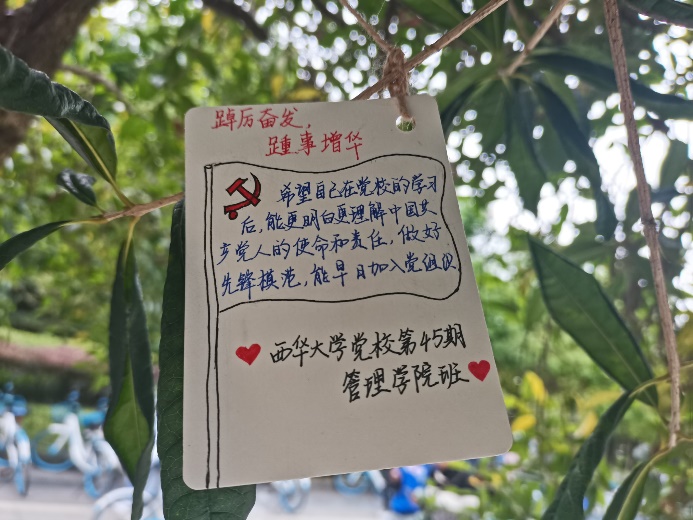 踔厉奋发，
踵事增华
希望自己在党校的学习
后，能更明白更理解中国共
产党人的使命和责任，做好
先锋模范，能早日加入党组织
西华大学党校第45期
管理学院班